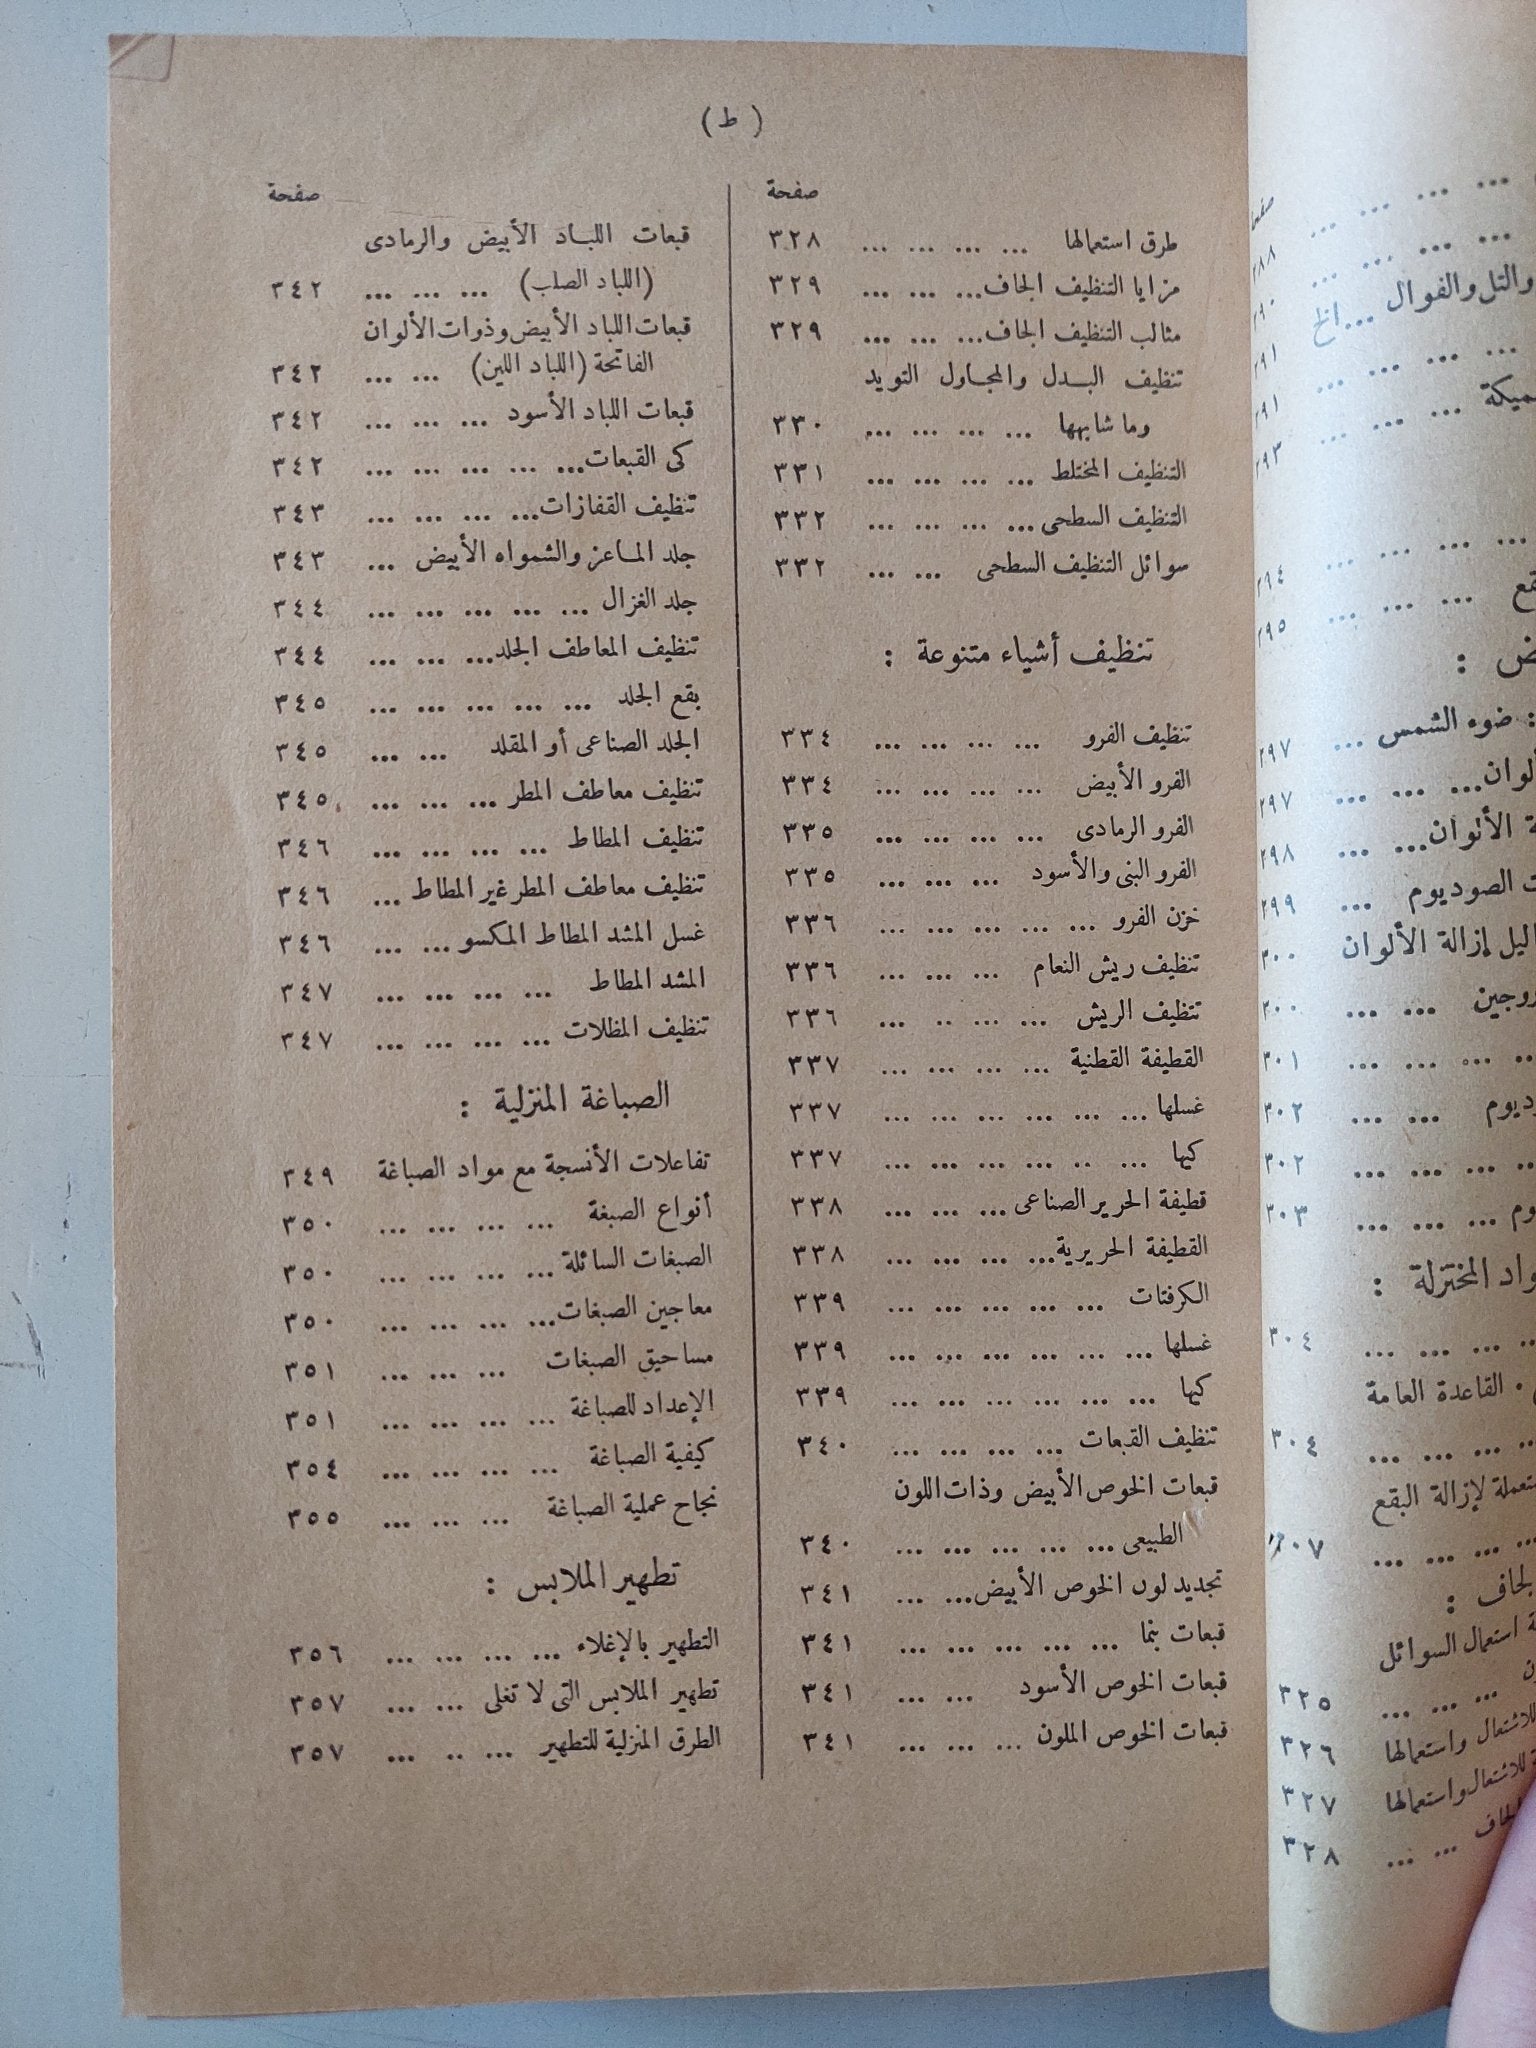 ( ط )
صفحة
طرق استعمالها ... ... ... ... ٣٢٨
مزايا التنظيف الجاف... ... ... ٣٢٩
مثالب التنظيف الجاف... ... ... ٣٢٩
تنظيف البدل والمجاول التويد
وما شابهها ... ... ... ... ٣٣٠
التنظيف المختلط ... ... ... ... ٣٣١
التنظيف السطحى ... ... ... ... ٣٣٢
سوائل التنظيف السطحى ... ... ٣٣٢
تنظيف أشياء متنوعة :
تنظيف الفرو ... ... ... ... ٣٣٤
الفرو الأبيض ... ... ... ... ٣٣٤
الفرو الرمادى ... ... ... ... ٣٣٥
الفرو البنى والأسود ... ... ... ٣٣٥
خزن الفرو ... ... ... ... ... ٣٣٦
تنظيف ريش النعام ... ... ... ٣٣٦
تنظيف الريش ... ... .. ... ٣٣٦
القطيفة القطنية ... ... ... ... ٣٣٧
غسلها ... ... ... ... ... ... ٣٣٧
كيها ... .. ... ... ... ... ٣٣٧
قطيفة الحرير الصناعى ... ... ... ٣٣٨
القطيفة الحريرية... ... ... ... ٣٣٨
الكرفتات ... ... ... ... ... ٣٣٩
غسلها ... ... ... ... ... ... ٣٣٩
كيها ... ... ... ... ... ... ٣٣٩
تنظيف القبعات ... ... ... ... ٣٤٠
قبعات الخوص الأبيض وذات اللون
الطبيعى ... ... ... ... ... ٣٤٠
تجديد لون الخوص الأبيض... ... ٣٤١
قبعات بنما ... ... ... ... ... ٣٤١
قبعات الخوص الأسود ... ... ٣٤١
قبعات الخوص الملون ... ... ... ٣٤١
صفحة
قبعات اللباد الأبيض والرمادى
(اللباد الصلب) ... ... ... ٣٤٢
قبعات اللباد الأبيض وذوات الألوان
الفاتحة (اللباد اللين) ... ... ٣٤٢
قبعات اللباد الأسود ... ... ... ٣٤٢
كى القبعات... ... ... ... ... ٣٤٢
تنظيف القفازات... ... ... ... ٣٤٣
جلد الماعز والشمواه الأبيض ... ٣٤٣
جلد الغزال ... ... ... ... ... ٣٤٤
تنظيف المعاطف الجلد... ... ... ٣٤٤
بقع الجلد ... ... ... ... ... ٣٤٥
الجلد الصناعى أو المقلد ... ... ٣٤٥
تنظيف معاطف المطر ... ... ... ٣٤٥
تنظيف المطاط ... ... ... ... ٣٤٦
تنظيف معاطف المطر غير المطاط ... ٣٤٦
غسل المشد المطاط المكسو ... ... ٣٤٦
المشد المطاط ... ... ... ... ٣٤٧
تنظيف المظلات ... ... ... ... ٣٤٧
الصباغة المنزلية :
تفاعلات الأنسجة مع مواد الصباغة ٣٤٩
أنواع الصبغة ... ... ... ... ٣٥٠
الصبغات السائلة ... ... ... ... ٣٥٠
معاجين الصبغات... ... ... ... ٣٥٠
مساحيق الصبغات ... ... ... ٣٥١
الإعداد للصباغة ... ... ... ... ٣٥١
كيفية الصباغة ... ... ... ... ٣٥٤
نجاح عملية الصباغة ... ... ... ٣٥٥
تطهير الملابس :
التطهير بالإغلاء ... ... ... ... ٣٥٦
تطهير الملابس التى لا تغلى ... ... ٣٥٧
الطرق المنزلية للتطهير ... .. ... ٣٥٧
صفحة
٢٨٨
والتل والفوال ... الخ ٢٩٠
... ... ... ... ٢٩١
... ... ... ٢٩١
٢٩٣
... ... ... ... ٢٩٤
... ... ... ٢٩٥
: ضوء الشمس ... ٢٩٧
... ... ... ٢٩٧
الألوان... ... ... ٢٩٨
الصوديوم ... ٢٩٩
إزالة الألوان ٣٠٠
... ... ٣٠٠
... ... ... ... ٣٠١
... ... ٣٠٢
... ... ... ... ٣٠٢
... ... ... ٣٠٣
المختزلة :
... ... ... ... ٣٠٤
القاعدة العامة
... ... ... ... ٣٠٤
لإزالة البقع
... ... ... ... ٣٠٧
استعمال السوائل
... ... ... ٣٢٥
للاشتعال واستعمالها ٣٢٦
للاشتعال واستعمالها ٣٢٧
... ... ٣٢٨